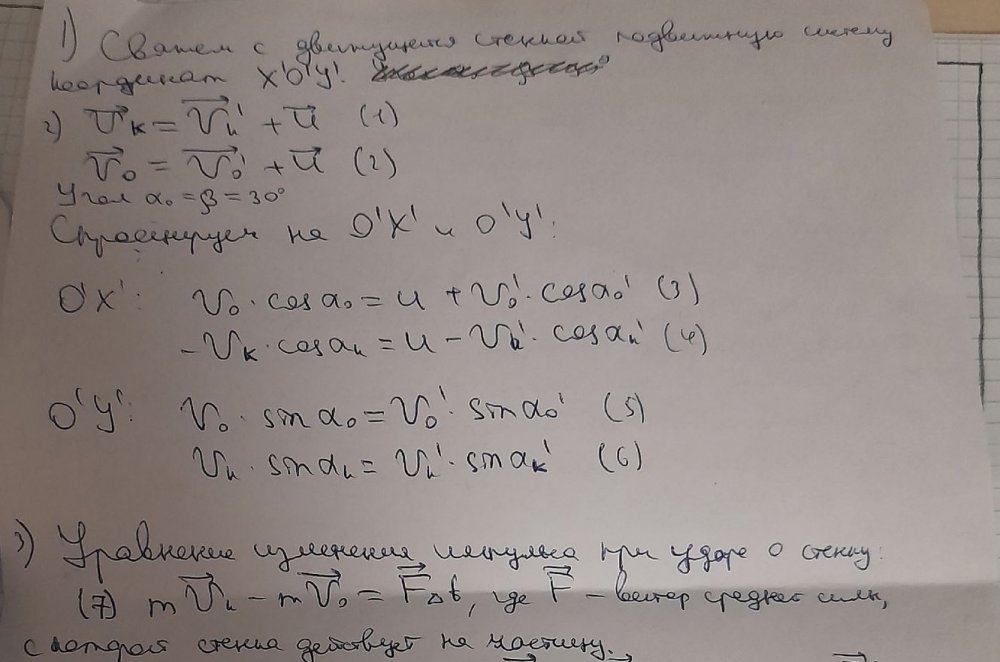 1) Свяжем с движущейся стенкой подвижную систему
координат X'O'Y'.
2) V⃗к = V⃗к' + u⃗ (1)
V⃗₀ = V⃗₀' + u⃗ (2)
Угол α₀ = β = 30°
Спроецируем на O'X' и O'Y':
O'X': V₀ · cos α₀ = u + V₀' · cos α₀' (3)
- Vк · cos αк = u - Vк' · cos αк' (4)
O'Y': V₀ · sin α₀ = V₀' · sin α₀' (5)
Vк · sin αк = Vк' · sin αк' (6)
3) Уравнение изменения импульса при ударе о стенку:
(7) mV⃗к - mV⃗₀ = F⃗Δt, где F⃗ - вектор средней силы,
с которой стенка действует на частицу.